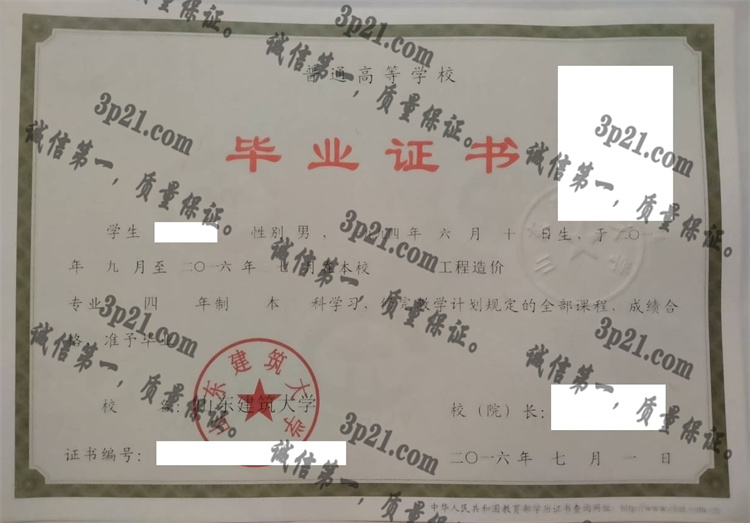 普通高等学校
毕业证书
学生 性别 男 , 四年 六 月 十 日生，于二〇一
年 九 月至 二〇一六 年 七 月 本校 工程造价
专业 四 年制 本 科学习，教学计划规定的全部课程，成绩合
格，准予毕业
校 : 山东建筑大学 校（院）长：
证书编号： 二〇一六年 七 月 一 日
中华人民共和国教育部学历证书查询网址：
山东建筑大学
3p21.com
诚信第一，质量保证。
3p21.com
诚信第一，质量保证。
3p21.com
诚信第一，质量保证。
3p21.com
诚信第一，质量保证。
3p21.com
诚信第一，质量保证。
3p21.com
诚信第一，质量保证。
3p21.com
诚信第一，质量保证。
3p21.com
诚信第一，